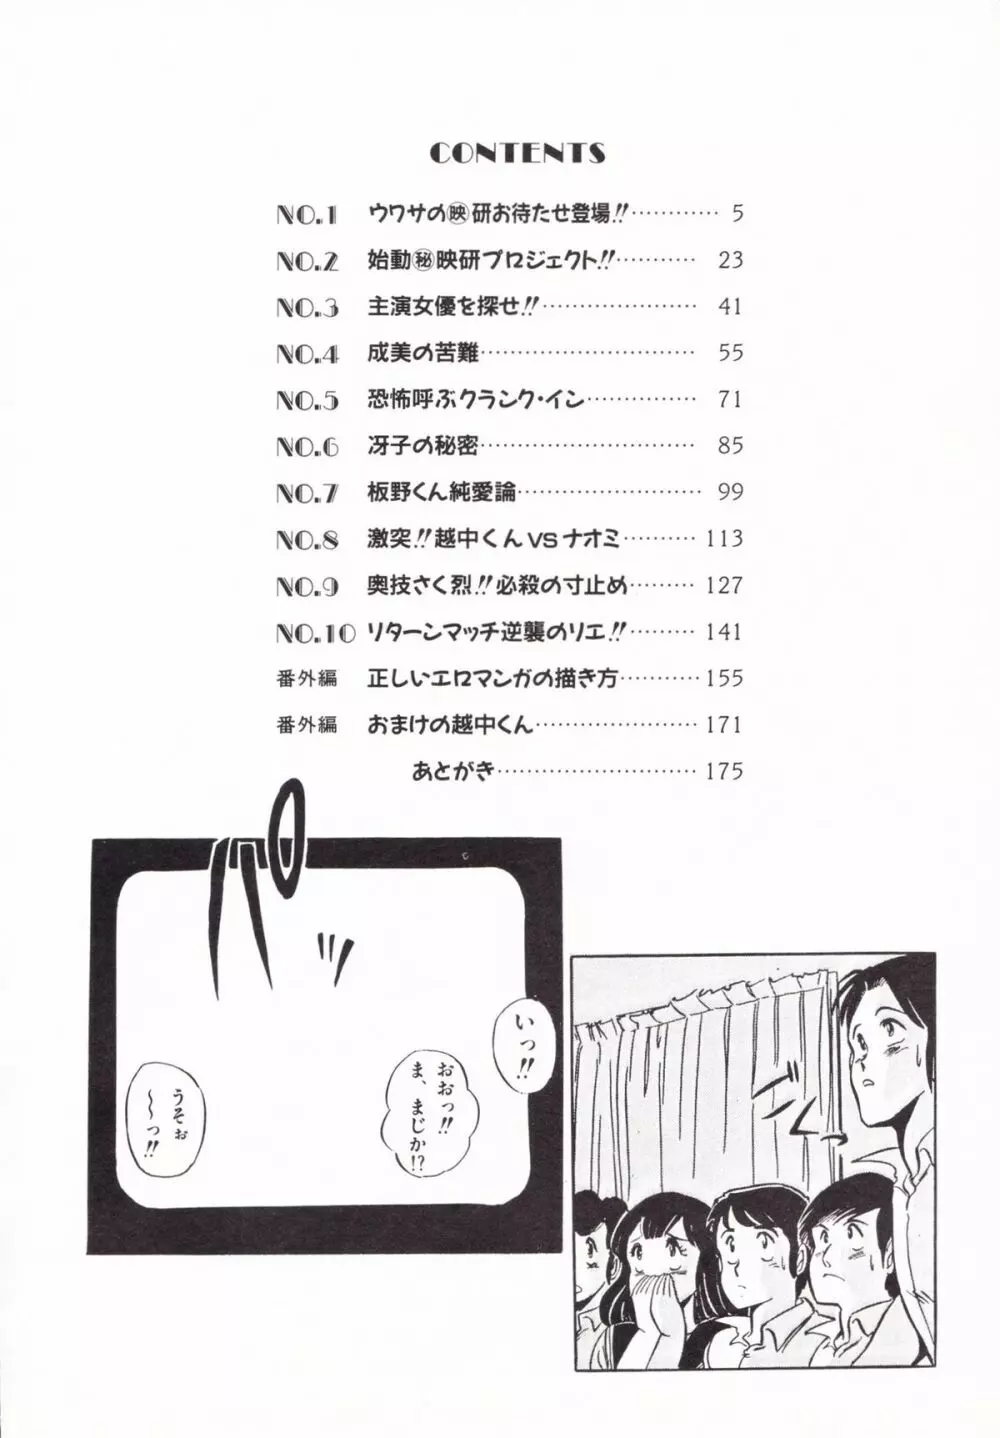 CONTENTS
NO.1 ウワサの㊙研お待たせ登場!!………… 5
NO.2 始動㊙映研プロジェクト!!………… 23
NO.3 主演女優を探せ!!………… 41
NO.4 成美の苦難………… 55
NO.5 恐怖呼ぶクランク・イン………… 71
NO.6 冴子の秘密………… 85
NO.7 板野くん純愛論………… 99
NO.8 激突!!越中くんVSナオミ………… 113
NO.9 奥技さく烈!!必殺の寸止め………… 127
NO.10 リターンマッチ逆襲のリエ!!………… 141
番外編 正しいエロマンガの描き方………… 155
番外編 おまけの越中くん………… 171
あとがき………… 175
いっ!!
おおっ!!
ま、まじか!?
うそぉ
〜〜っ!!